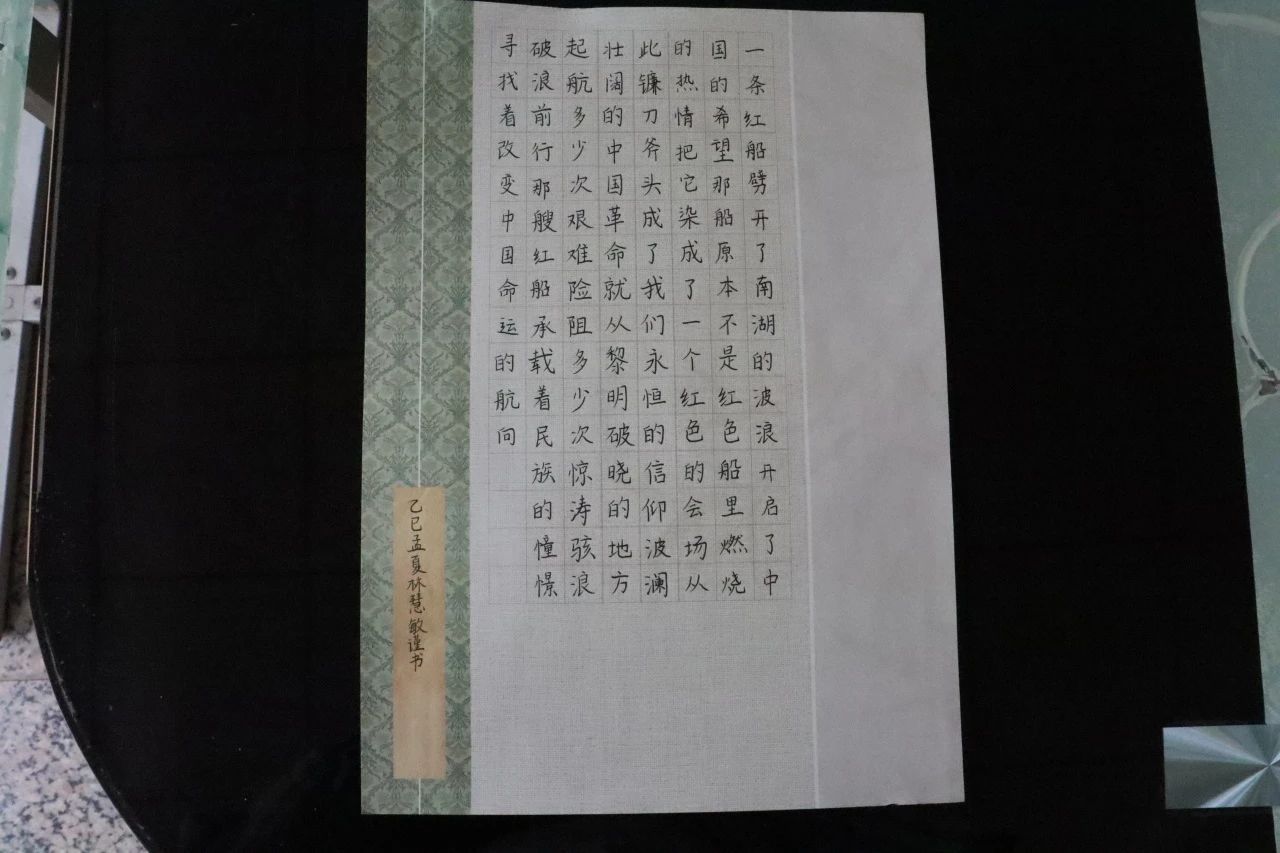 一条红船劈开了南湖的波浪开启了中
国的希望那船原本不是红色船里燃烧
的热情把它染成了一个红色的会场从
此镰刀斧头成了我们永恒的信仰波澜
壮阔的中国革命就从黎明破晓的地方
起航多少次艰难险阻多少次惊涛骇浪
破浪前行那艘红船承载着民族的憧憬
寻找着改变中国命运的航向
乙巳孟夏林慧敏谨书